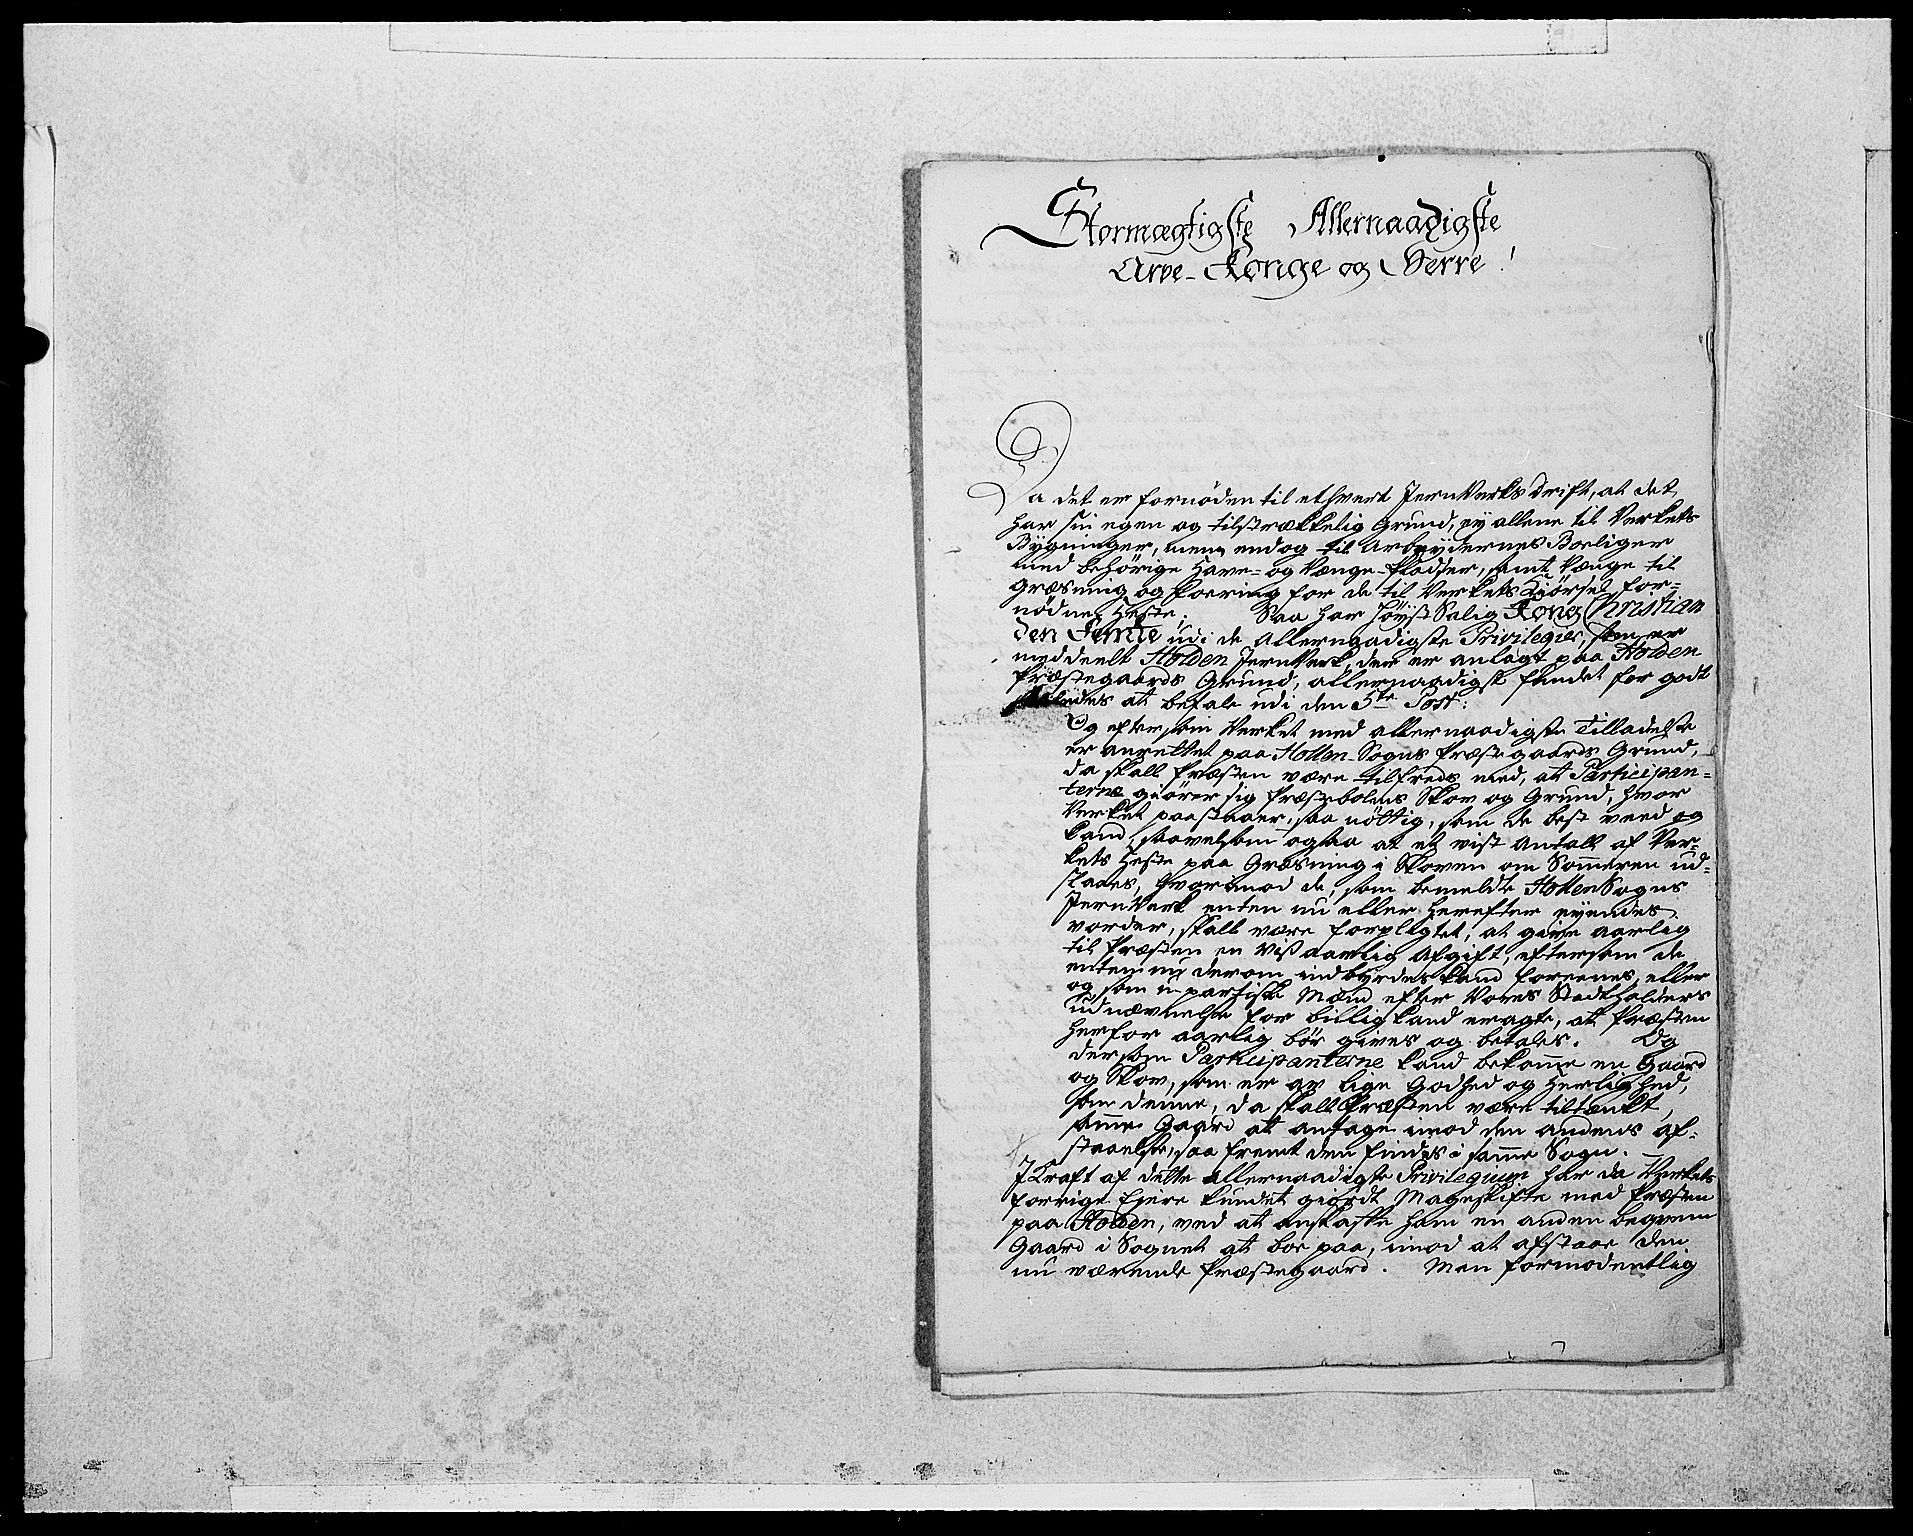 Stormægtigste Allernaadigste
Arve-Konge og Herre!
Da det er fornöden til ethvert JernVerks Drift, at det
har sin egen og tilstrækkelig Grund, ey allene til Verkets
Bygninger, men endog til Arbeydernes Boeliger
med behörige Have- og Vænge-Pladser, samt Vænge til
Græsning og foering for de til Verkets Kiörsel for-
nödne Heste; Saa har höyst Salig Kong Christian
den Femte udi de allernaadigste Privilegier, som er
meddeelt Holden JernVerk, der er anlagt paa Holden
Præstegaards Grund, allernaadigst fundet for godt
saaledes at befale udi den 5te Post:
Og eftersom Verket med allernaadigste Tilladelse
er anrettet paa Hollen-Sogns Præstegaards Grund,
da skall Præsten være tilfreds med, at Participan-
terne giörer sig Præstebolens Skov og Grund, hvor
Verket paastaaer, saa nöttig, som de best veed og
kand, saavelsom ogsaa at et vist antall af Ver-
kets Heste paa Græsning i Skoven om Sommeren ud-
staaes, hvormod de, som bemeldte HollenSogns
JernVerk enten nu eller herefter eyendes
vorder, skall være forpligtet, at give aarlig
til Præsten en Viss aarlig Afgift, eftersom de
enten nu derom indbyrdes kand foreenes, eller
og som upartiske Mænd efter Vores Stadtholders
udnævnelse for billig kand eragte, at Præsten
herfor aarlig bör gives og betales. Og
dersom Participanterne kand bekomme en Gaard
og Skov, som er av lige Godhed og Herlighed,
som denne, da skall Præsten være tiltænkt,
samme Gaard at antage imod den andens af-
staaelse, saa fremt den findes i samme Sogn.
I Kraft af dette allernaadigste Privilegium har da Verkets
forrige Eyere kundet giordt Mageskifte med Præsten
paa Holden, ved at anskaffe ham en anden beqvem
Gaard i Sognet at boe paa, imod at afstaae den
nu værende Præstegaard. Men formodentlig